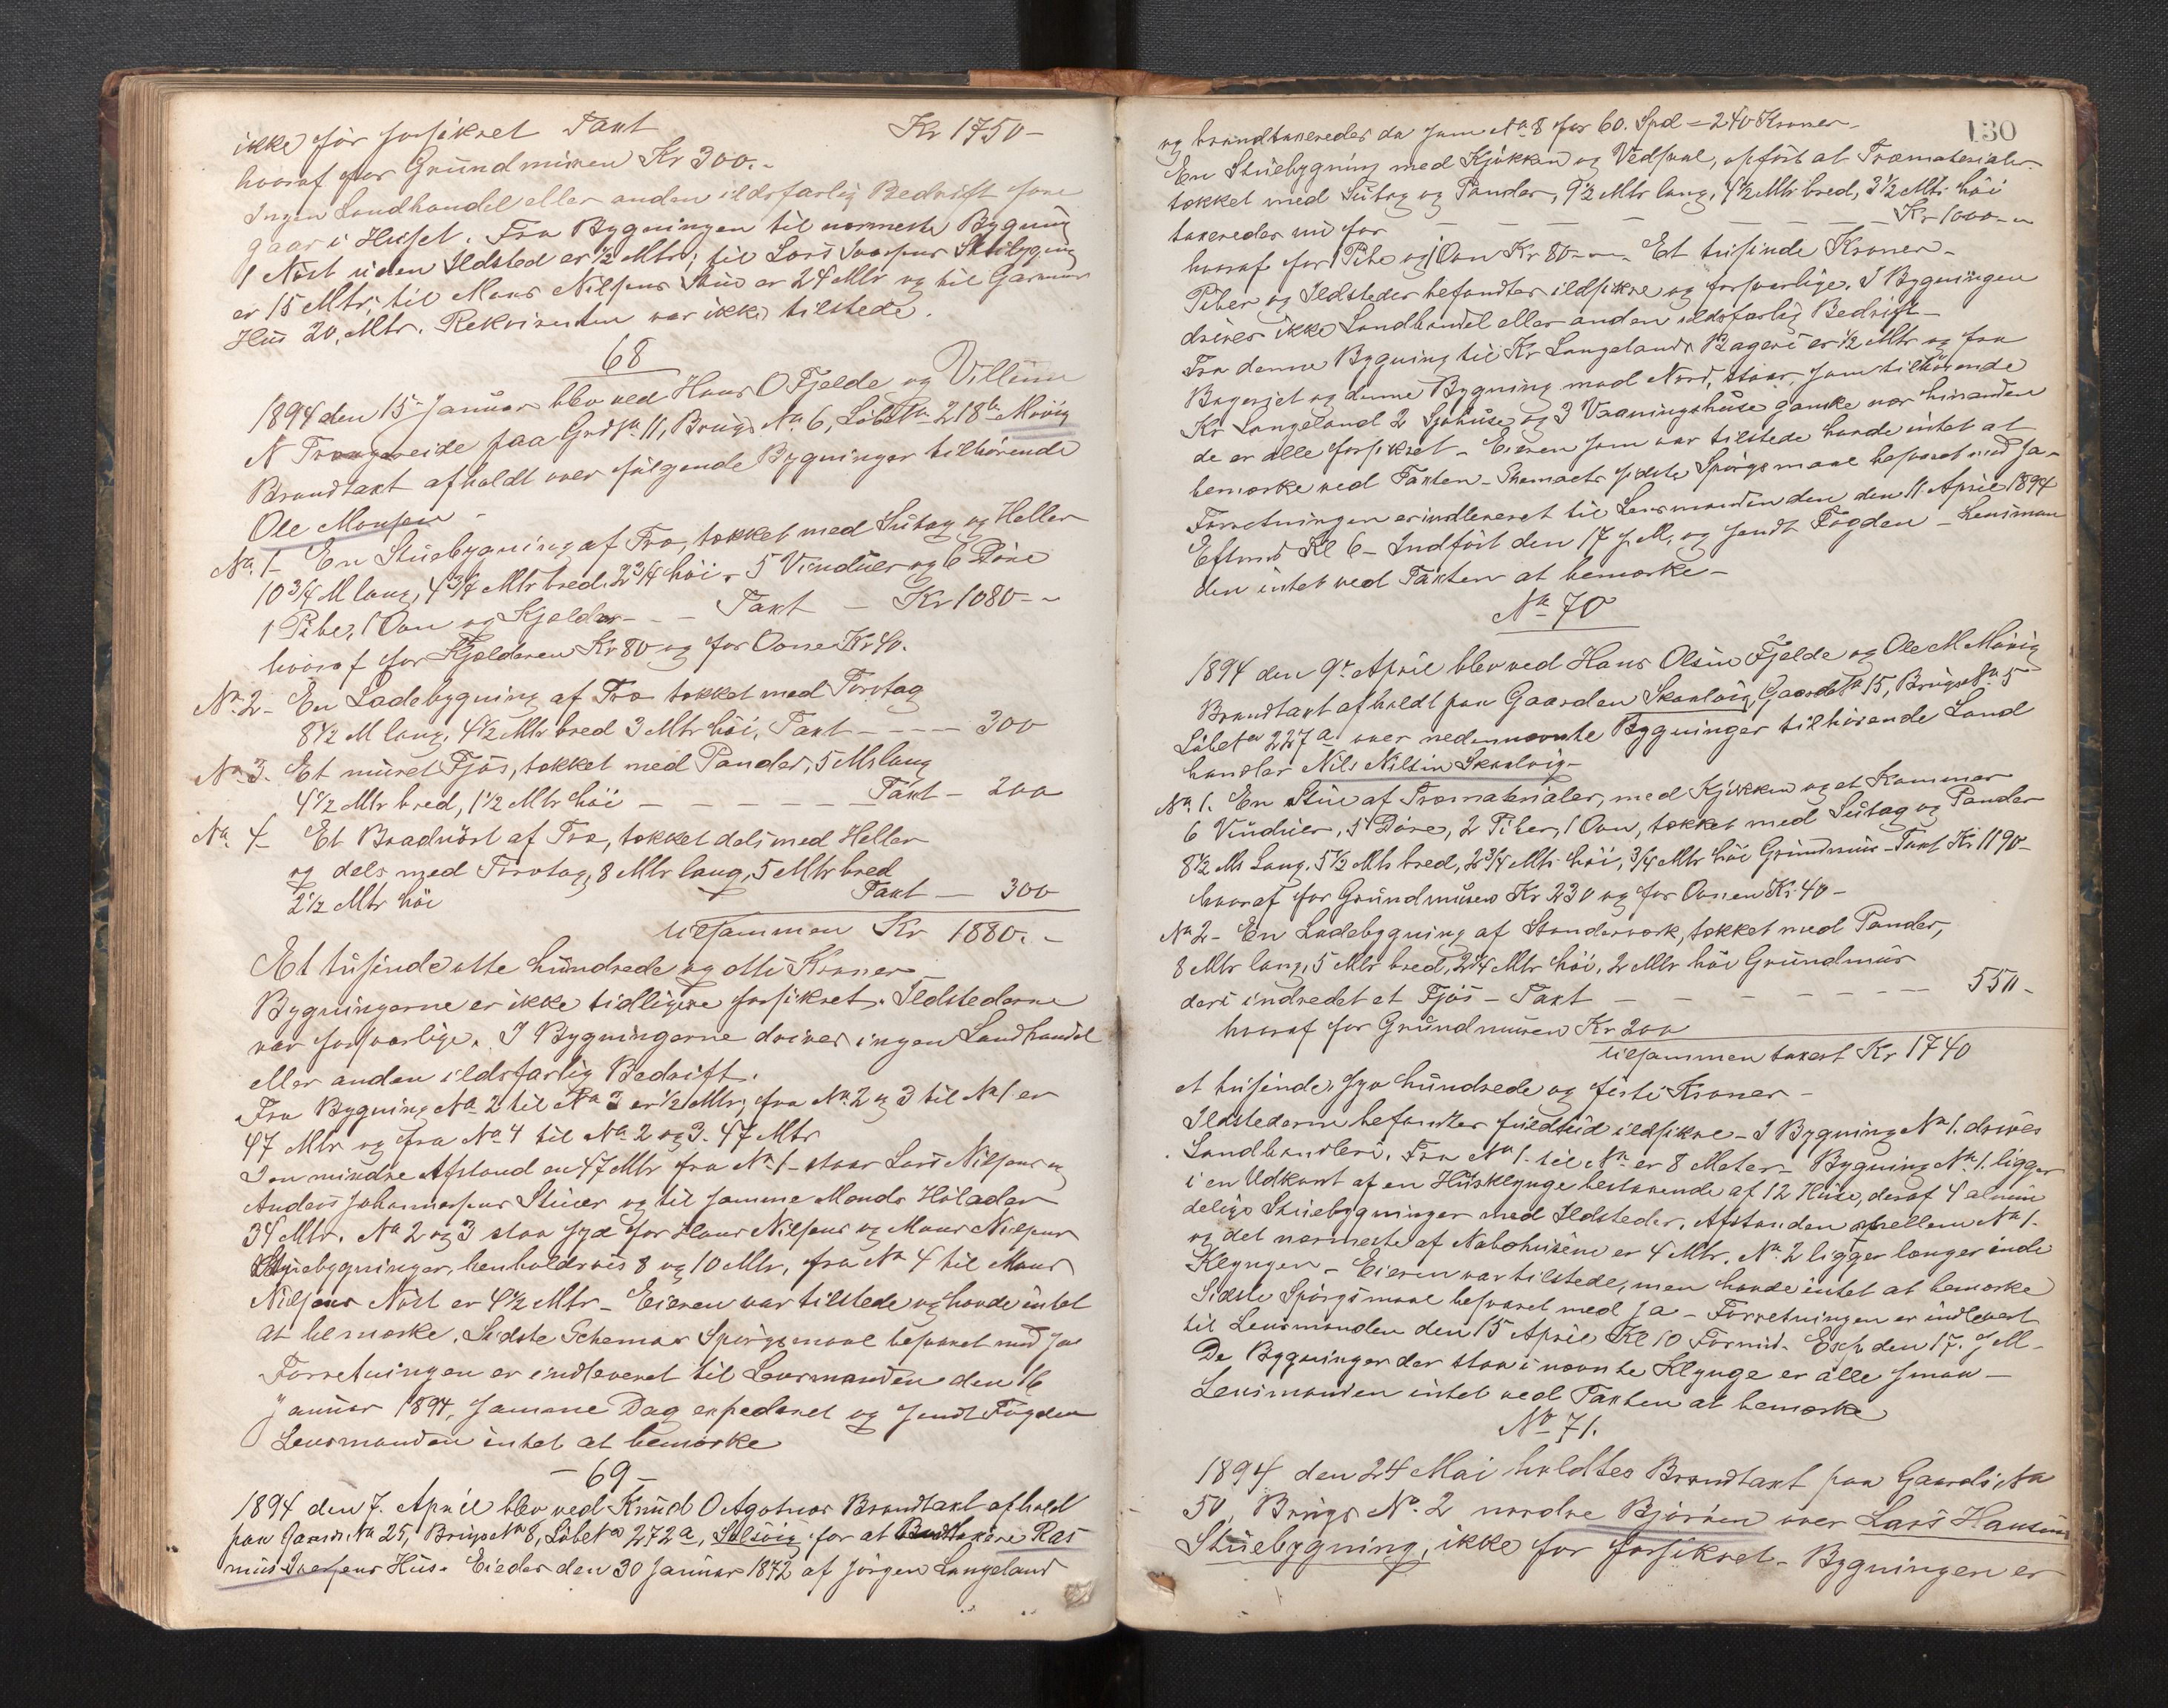 ikke før forsikret Taxt Kr 1750-
hvoraf for Grundmuren Kr 300.-
Ingen Landhandel eller anden ildsfarlig Bedrift fore
gaar i Huset. Fra Bygningen til nærmeste Bygning
1 Nøst uden Ildsted er ½ Mtr; til Lars Stuebygning
er 15 Mtr; til Mons Nilsens Stue er 24 Mtr og til
Hus 20, Mtr. Rekvirenten var ikke tilstede.
68
1894 den 15 Januar blev ved Hans O Fjelde og Villum
N Trengereide paa Grds No 11, Brugs No 6, Løbe No 218 b Møvig
Brandtaxt afholdt over følgende Bygninger tilhørende
Ole Monsen -
No 1- En Stuebygning af Træ, tækket med Sutag og Heller
10 3/4 M lang, 4 3/4 Mtr bred, 2 3/4 høi, 5 Vinduer og 6 Døre
1 Pibe, 1 Ovn og Kjelder - - - Taxt - Kr 1080 - -
hvoraf for Kjelderen Kr 80 og for Ovnen Kr 40.
No 2- En Ladebygning af Træ tækket med Torvtag
8 1/2 M lang, 4 1/2 Mtr bred 3 Mtr høi, Taxt - - - - 300
No 3. Et muret Fjøs, tækket med Pander, 5 M lang
4 1/2 Mtr bred, 1 1/2 Mtr høi - - - - - - Taxt - 200
No. 4 Et Baadnøst af Træ, tækket dels med Heller
og dels med Torvtag, 8 Mtr lang, 5 Mtr bred
2 1/2 Mtr høi Taxt - 300
tilsammen Kr 1880.-
Et tusinde otte hundrede og otti Kroner -
Bygningerne er ikke tidligere forsikret. Ildstederne
var forsvarlige. I Bygningerne drives ingen Landhandel
eller anden ildsfarlig Bedrift.
Fra Bygning No 2 til No 3 er 1/2 Mtr; fra No 2 og 3 til No 1 er
47 Mtr og fra No 4 til No 2 og 3. 47 Mtr
I en mindre Afstand en 47 Mtr fra No 1 - staar Lars Nilsens og
Anders Johannessens Stuer og til samme Mands Hølader
34 Mtr. No 2 og 3 staa syd for Hans Nilsens og Mons Nilsens
Stuebygninger, henholdsvis 8 og 10 Mtr, fra No 4 til Mons
Nilsens Nøst er 4 1/2 Mtr - Eieren var tilstede og havde intet
at bemærke. Sidste Schemas Spørgsmaal besvaret med ja
Forretningen er indleveret til Lensmanden den 16
Januar 1894, samme Dag expederet og sendt Fogden
Lensmanden intet at bemærke
- 69 -
1894 den 7. April blev ved Knud O Agotnæs Brandtaxt afhold
paa Gaards No 25, Brugs No 8, Løbe No 272 a, Solsvig for at Brandtaxere Ras
mus Iversens Hus. Eiedes den 30 Januar 1872 af Jørgen Langeland
130
og brandtaxeredes da som No 8 for 60. Spd = 240 Kroner -
En Stuebygning med Kjøkken og Vedsval, opført af Træmaterialer
tækket med Sutag og Pander, 9 1/2 Mtr lang, 4 1/2 Mtr bred, 3 1/2 Mtr høi
taxeredes nu for - - - - - - Kr 1000 - -
hvoraf for 1 Pibe og 1 Ovn Kr 80 - - - Et tusinde Kroner -
Piber og Ildsteder befandtes ildsikre og forsvarlige. I Bygningen
drives ikke Landhandel eller anden ildsfarlig Bedrift -
Fra denne Bygning til Kr Langelands Bageri er 1/2 Mtr og fra
Bageriet og denne Bygning mod Nord, staar som tilhørende
Kr Langeland 2 Sjøhuse og 3 Vaaningshuse ganske nær hinanden
de er alle forsikret - Eieren som var tilstede havde intet at
bemærke ved Taxten - Skemaets sidste Spørgsmaal besvaret med Ja -
Forretningen er indleveret til Lensmanden den 11 April 1894
Eftmd Kl 6 - Indført den 17 s. M, og sendt Fogden - Lensman
den intet ved Taxten at bemærke -
No 70
1894 den 9de April blev ved Hans Olsen Fjelde og Ole M Møvig
Brandtaxt afholdt paa Gaarden Skaalvig, Gaards No 15, Brugs No 5
Løbe No 227 a over nedennævnte Bygninger tilhørende Land
handler Nils Nilsen Skaalvig -
No 1. En Stue af Træmaterialer, med Kjøkken og et Kammer
6 Vinduer, 5 Døre, 2 Piber, 1 Ovn, tækket med Sutag og Pander
8 1/2 M Lang. 5 1/2 Mtr bred, 2 3/4 Mtr høi, 3/4 Mtr høi Grundmur - Taxt Kr 1190 -
hvoraf for Grundmuren Kr 230 og for Ovnen Kr 40 -
No 2 - En Ladebygning af Standerværk, tækket med Pander,
8 Mtr lang, 5 Mtr bred, 2 1/4 Mtr høi, 2 Mtr høi Grundmur
deri indredet et Fjøs - Taxt - - - - - - - 550 -
hvoraf for Grundmuren Kr 200
tilsammen taxert Kr 1740
et tusinde, syv hundrede og firti Kroner -
Ildstederne befandtes fuldtud ildsikre - I Bygning No 1. drives
Landhandleri. Fra No 1. til No er 8 Meter - Bygning No 1. ligger
i en Udkant af en Husklynge bestaaende af 12 Huse, deraf 4 almin
delige Stuebygninger med Ildsteder. Afstanden mellem No 1.
og det nærmeste af Nabohusene er 4 Mtr. No 2 ligger længer inde
Klyngen - Eieren var tilstede, men havde intet at bemærke
Sidste Spørgsmaal besvaret med ja - Forretningen er indlevert
til Lensmanden den 15 April Kl 10 Formid. Exp den 17. s M -
De Bygninger der staa i nævnte Klynge er alle smaa -
Lensmanden intet ved Taxten at bemærke
No 71.
1894 den 24 Mai holdtes Brandtaxt paa Gaards No
50, Brugs No. 2 nordre Bjørøen over Lars Hansens
Stuebygning, ikke før forsikret - Bygningen er